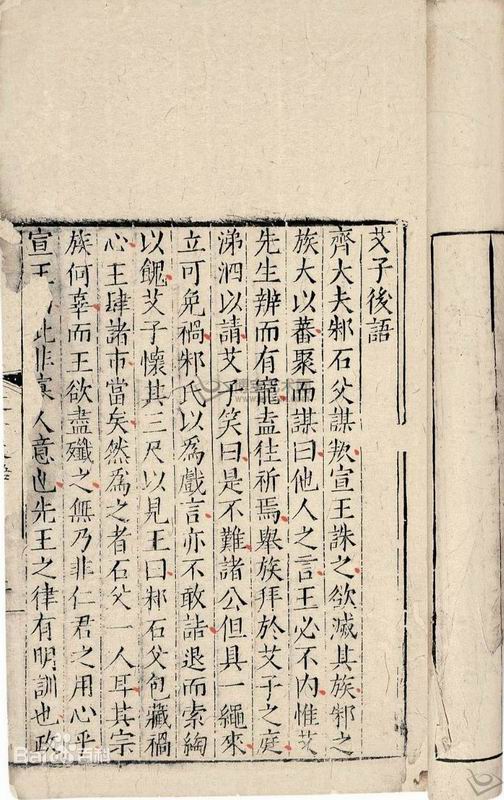 艾子後語
齊大夫邾石父謀叛宣王誅之欲滅其族邾之
族大以蕃聚而謀曰他人之言王必不内惟艾
先生辨而有寵盍往祈焉舉族拜於艾子之庭
涕泗以請艾子笑曰是不難諸公但具一繩來
立可免禍邾氏以爲戲言亦不敢詰退而索綯
以餽艾子懷其三尺以見王曰邾石父包藏禍
心王肆諸市當矣然爲之者石父一人耳其宗
族何辜而王欲盡殲之無乃非仁君之用心乎
宣王此非寡人意也先王之律有明訓也政
Bai百科